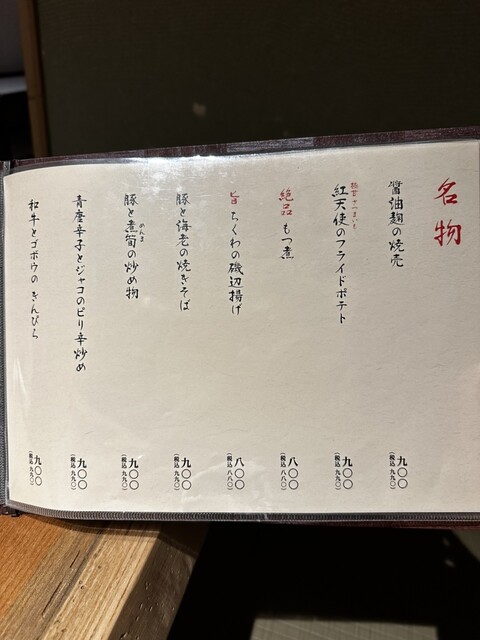 名物
醤油麹の焼売 九〇〇 (税込 九九〇)
極甘 さつまいも
紅天使のフライドポテト 九〇〇 (税込 九九〇)
絶品 もつ煮 八〇〇 (税込 八八〇)
旨 ちくわの磯辺揚げ 八〇〇 (税込 八八〇)
豚と海老の焼きそば 九〇〇 (税込 九九〇)
めんま
豚と煮筍の炒め物 九〇〇 (税込 九九〇)
青唐辛子とジャコのピリ辛炒め 九〇〇 (税込 九九〇)
和牛とゴボウのきんぴら 九〇〇 (税込 九九〇)